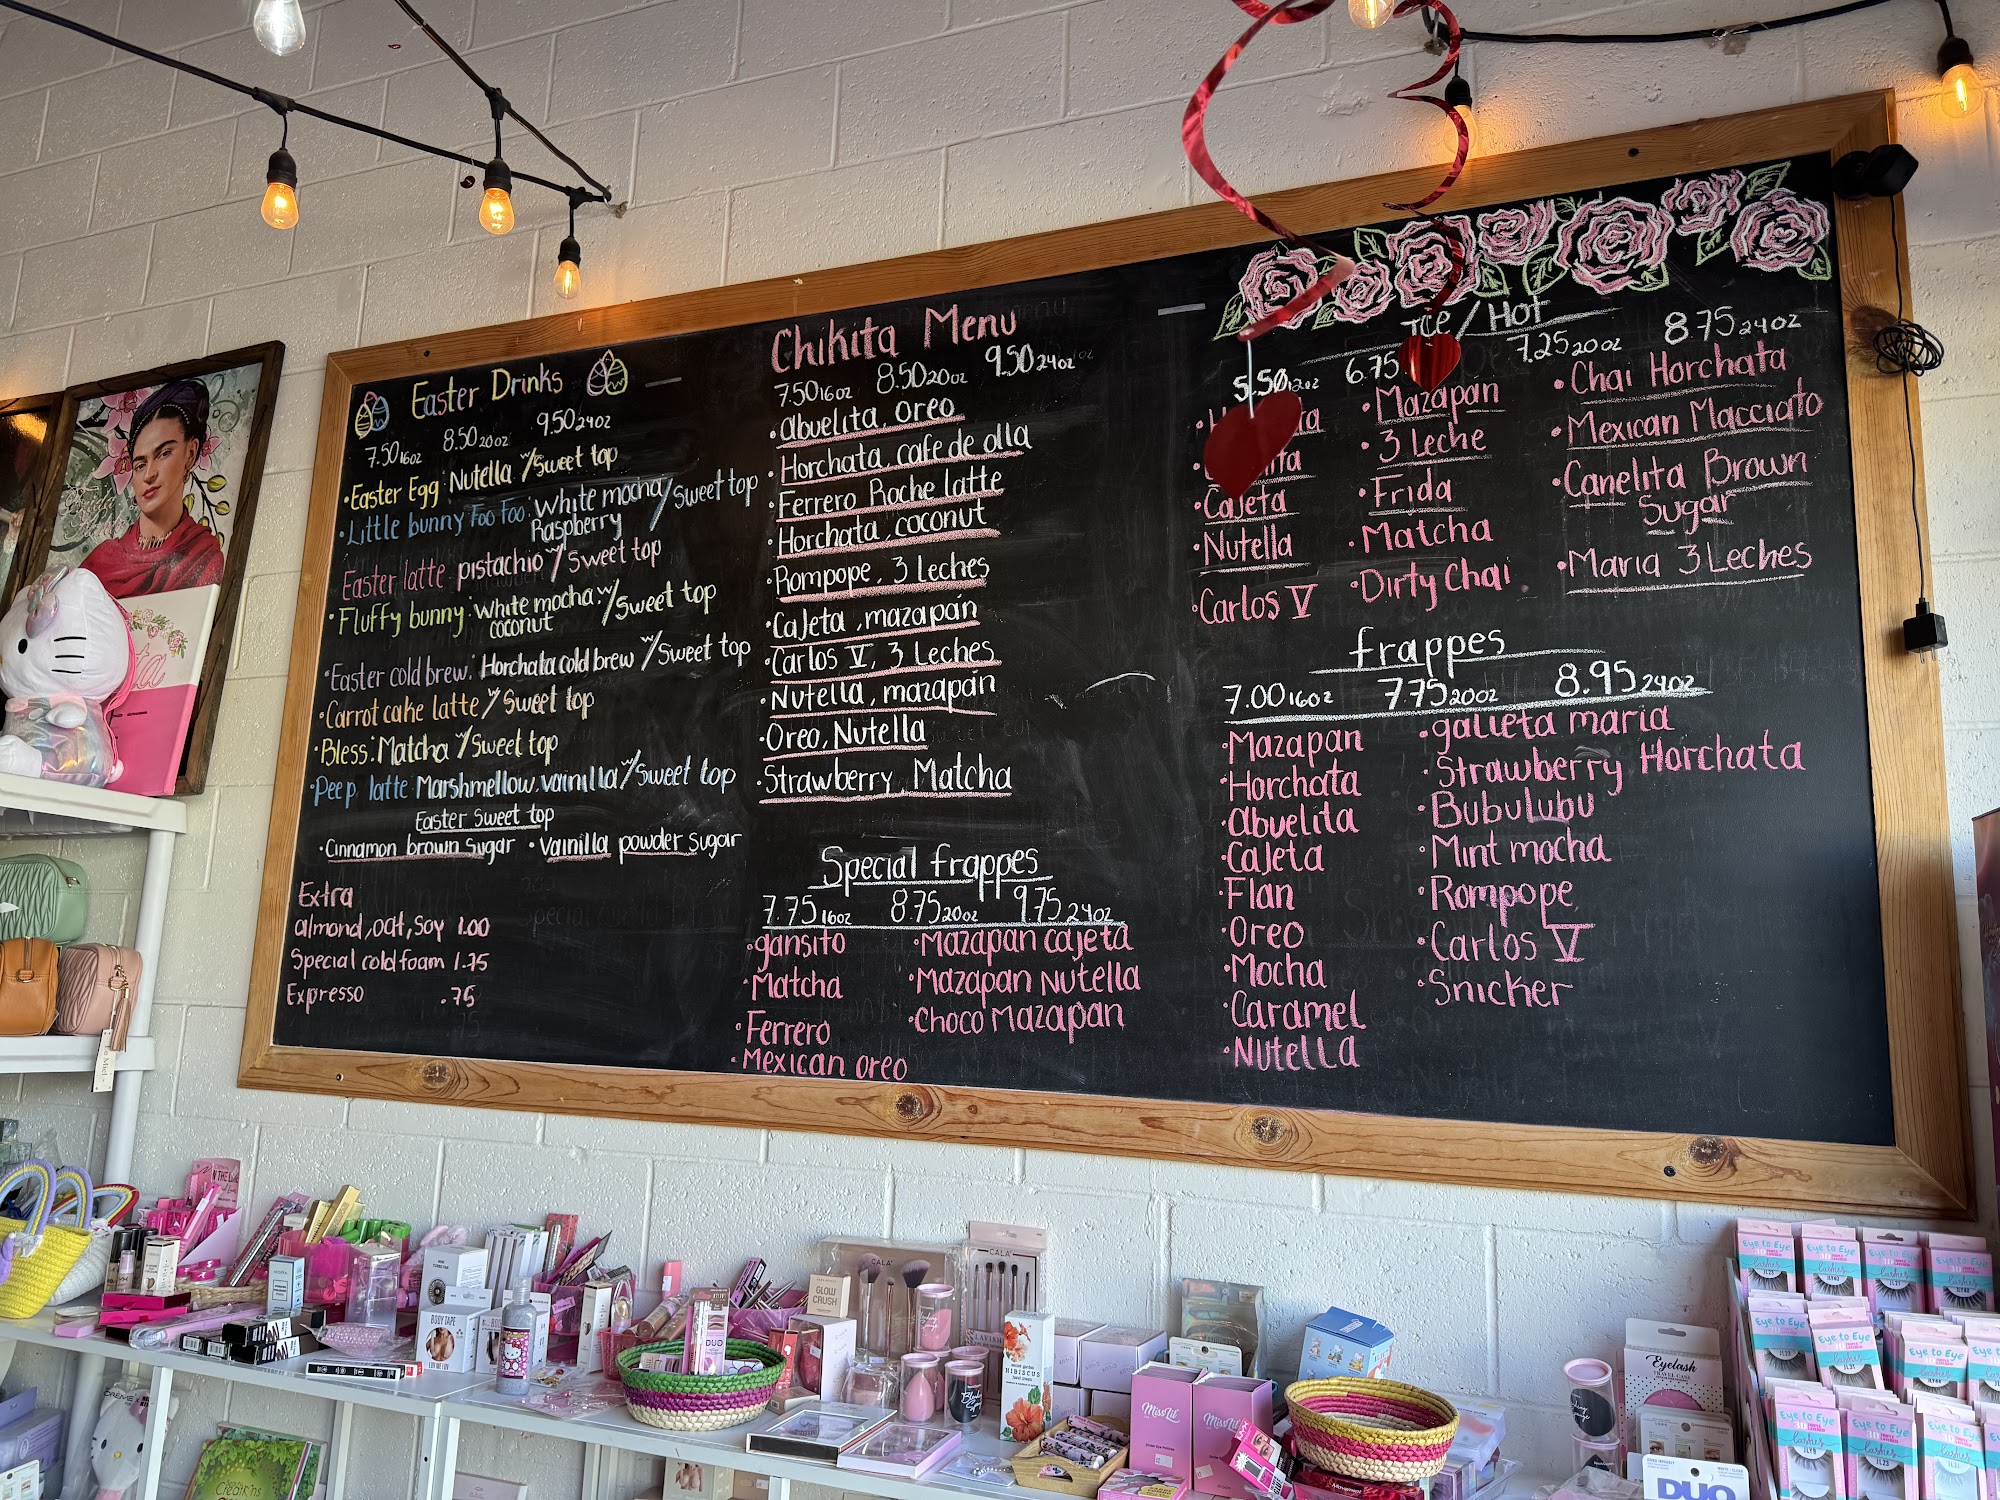 Easter Drinks
7.50 16oz 8.50 20oz 9.50 24oz
•Easter Egg: Nutella w/Sweet top
•Little bunny Foo Foo: White mocha w/Sweet top
Raspberry
Easter latte pistachio w/Sweet top
•Fluffy bunny: White mocha w/Sweet top
coconut
•Easter cold brew: Horchata cold brew w/Sweet top
•Carrot cake latte w/Sweet top
•Bless: Matcha w/Sweet top
•Peep latte Marshmellow, vainilla w/Sweet top
Easter Sweet top
•Cinnamon brown sugar •Vainilla powder sugar
Extra
almond, oat, soy 1.00
Special cold foam 1.75
Expresso .75
Chikita Menu
7.50 16oz 8.50 20oz 9.50 24oz
•Abuelita, oreo
•Horchata, cafe de olla
•Ferrero Roche latte
•Horchata, coconut
•Rompope, 3 Leches
•Cajeta, mazapán
•Carlos V, 3 Leches
•Nutella, mazapán
•Oreo, Nutella
•Strawberry, Matcha
Special frappes
7.75 16oz 8.75 20oz 9.75 24oz
•gansito
•Matcha
•Ferrero
•Mexican oreo
•Mazapan cajeta
•Mazapan Nutella
•Choco Mazapan
Ice/Hot
5.50 12oz 6.75 7.25 20oz 8.75 24oz
•Cajeta
•Nutella
•Carlos V
•Mazapan
•3 Leche
•Frida
•Matcha
•Dirty Chai
•Chai Horchata
•Mexican Macciato
•Canelita Brown
Sugar
•Maria 3 Leches
frappes
7.00 16oz 7.75 20oz 8.95 24oz
•Mazapan
•Horchata
•Abuelita
•Cajeta
•Flan
•Oreo
•Mocha
•Caramel
•Nutella
•galleta maria
•Strawberry Horchata
•Bubulubu
•Mint mocha
•Rompope
•Carlos V
•Snicker
BODY TAPE
GLOW
CRUSH
CALA
CALA
DUO
HIBISCUS
MissLil
MissLil
Eyelash
TRAVEL CASE
DUO
Eye to Eye
lashes
Eye to Eye
lashes
Eye to Eye
lashes
Eye to Eye
lashes